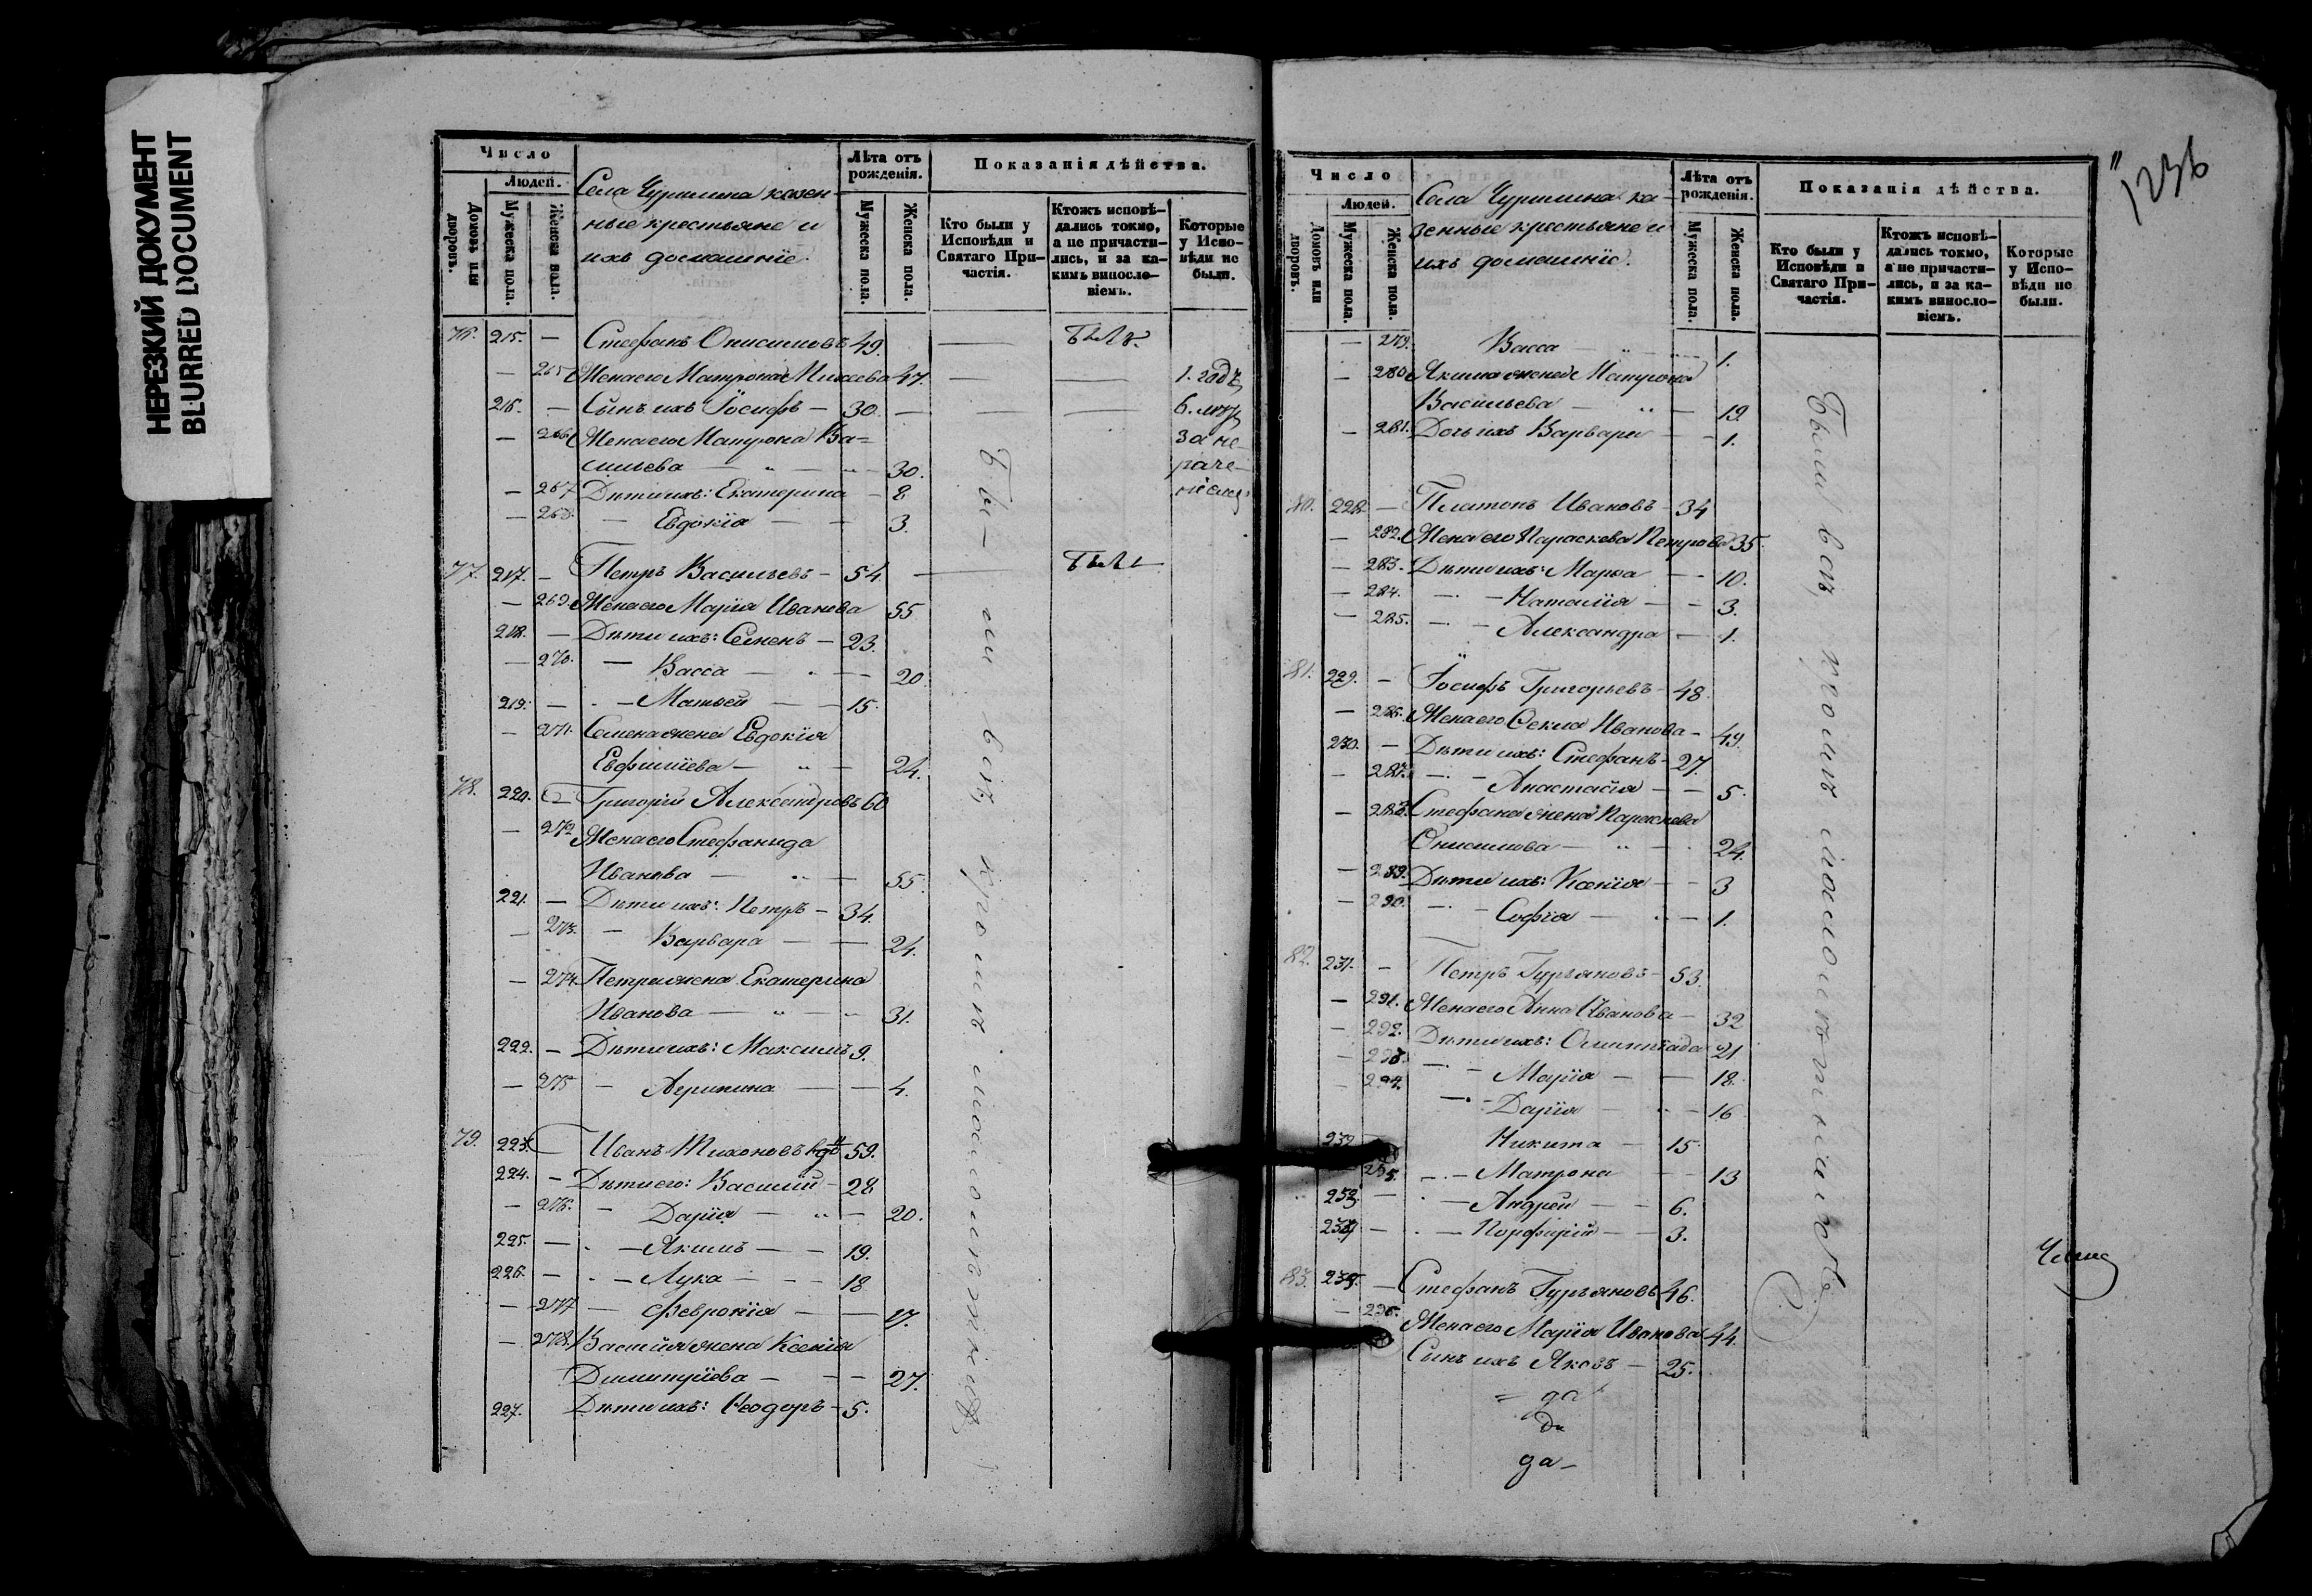 НЕРЕЗКИЙ ДОКУМЕНТ
BLURRED DOCUMENT
Число
Людей.
Домовъ или дворовъ.
Мужеска пола.
Женска пола.
Села Чурилина казен-
ные крестьяне и
ихъ домашніе.
Лѣта отъ рожденія.
Мужеска пола.
Женска пола.
Показанія дѣйства.
Кто были у Исповѣди и Святаго При-частія.
Ктожъ исповѣ-дались токмо, а не причасти-лись, и за ка-кимъ винослo-віемъ.
Которые у Испо-вѣди не были.
76. 215. — Стефанъ Онисимовъ 49. — Былъ.
— 265 Жена его Матрона 47. — — 1. годъ
216. — Сынъ ихъ Іосифъ — 30. — — — 6. лѣтъ
— 266 Жена его Матрона Ва= за не-
сильева — „ — 30. раче-
— 267 Дѣти ихъ: Екатерина — 8
— 268. — Евдокія — — 3.
77. 217. — Петръ Васильевъ — 54. — Былъ
— 269. Жена его Марія Иванова 55
218. — Дѣти ихъ: Семенъ — 23.
— 270. — Васса — — 20.
219. — — Матѳей — — 15.
— 271. Семена жена Евдокія
Евфиміева — „ — 24.
78. 220. — Григорій Александровъ 60
— 272 Жена его Стефанида
Иванова — „ — 55.
221. — Дѣти ихъ: Петръ — 34.
— 273. — Варвара — — 24.
— 274. Петра жена Екатерина
Иванова — „ — 31.
222. — Дѣти ихъ: Максимъ 9.
— 275 — Агрипина — — 4.
79. 223. — Иванъ Тихоновъ вдв 59.
224. — Дѣти его: Василій — 28
— 276. — Дарія — „ — 20.
225. — — Якимъ — — 19.
226. — — Лука — — 18
— 277 — Февронія — — 17.
— 278. Василія жена Ксенія
Димитріева — — 27.
227. Дѣти ихъ: Ѳеодоръ — 5.
Бы- ли всѣ, кромѣ
1236
Число
Людей.
Домовъ или дворовъ.
Мужеска пола.
Женска пола.
Села Чурилина ка-
зенные крестьяне и
ихъ домашніе.
Лѣта отъ рожденія.
Мужеска пола.
Женска пола.
Показанія дѣйства.
Кто были у Исповѣди и Святаго При-частія.
Ктожъ исповѣ-дались токмо, а не причасти-лись, и за ка-кимъ винослo-віемъ.
Которые у Испо-вѣди не были.
— 279. Васса — „ — 1.
— 280. Якима жена Матрона
Васильева — „ — 19.
— 281. Дочь ихъ Варвара — — 1.
80. 228. — Платонъ Ивановъ — 34
— 282. Жена его Параскева Петрова 35.
— 283. Дѣти ихъ: Марѳа — — 10.
— 284. — — Наталія — — 3.
— 285. — — Александра — 1.
81. 229. — Іосифъ Григорьевъ — 48.
— 286. Жена его Ѳекла Иванова — 49.
230. — Дѣти ихъ: Стефанъ — 27.
— 287. — — Анастасія — — 5.
— 288. Стефана жена Параскева
Онисимова — „ — 24.
— 289. Дѣти ихъ: Ксенія — — 3
— 290. — — Софія — — 1.
82. 231. — Петръ Гурьяновъ — 53.
— 291. Жена его Анна Иванова — 32
— 292. Дѣти ихъ: Олимпіада 21
— 293. — — Марія — — 18.
— 294. — — Дарія — — 16
232 Никита — 15.
295. — — Матрона — — 13
233. — — Андрей — — 6.
234 — — Порфирій — — 3.
83. 235. — Стефанъ Гурьяновъ 46.
— 296. Жена его Марія Иванова 44.
Сынъ ихъ Яковъ — 25.
= да
да
да —
Были всѣ, кромѣ малолѣтныхъ